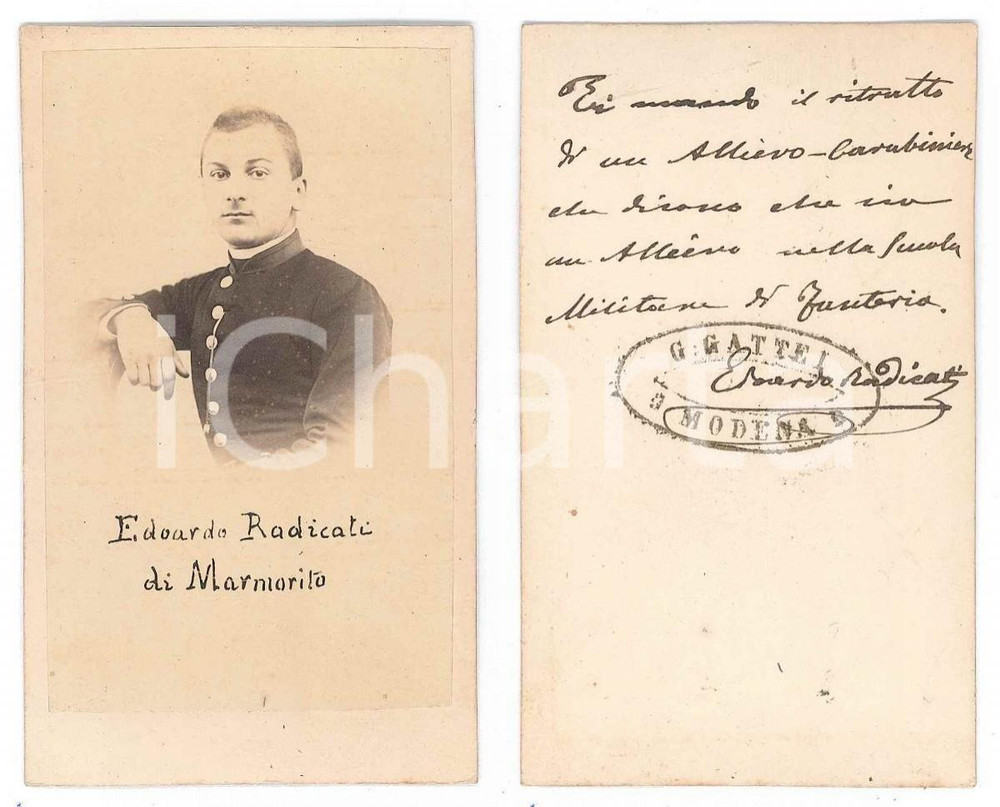 Edoardo Radicati
di Marmorito
Ti mando il ritratto
di un Allievo-Carabiniere
che dicono che sia
un Allievo nella Scuola
Militare di Fanteria.
Edoardo Radicati
G. GATTEI
MODENA
iCharta